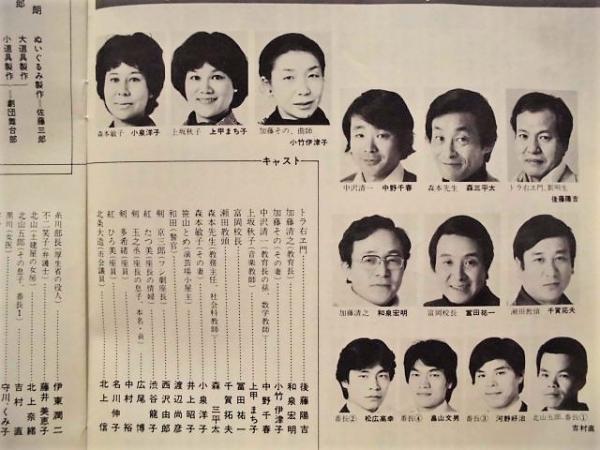 森本敏子 小泉洋子
上坂秋子 上甲まち子
加藤その、曲師
小竹伊津子
中沢清一 中野千春
森本先生 森三平太
トラ右ヱ門、
後藤陽吉
加藤清之 和泉宏明
富岡校長 富田祐一
瀬田教頭 千賀拓夫
番長② 松広高幸
番長④ 畠山文男
番長③ 河野好治
北山五郎、番長①
吉村直
キャスト
トラ右ヱ門……後藤陽吉
加藤清之(教育長)……和泉宏明
加藤その(その妻)……小竹伊津子
中沢清一(教育長の甥、数学教師)……中野千春
上坂秋子(音楽教師)……上甲まち子
富岡校長……富田祐一
瀬田教頭……千賀拓夫
森本先生(教務主任、社会科教師)……森三平太
森本敏子(その妻)……小泉洋子
笹山とめ(演芸場小屋主)……井上昭子
和田(警官)……渡辺尚彦
剣京三郎(フシ劇座長)……西沢由郎
紅たつ美(座長の情婦)……渋谷龍子
剣玉之丞(座長の息子、本名・	)……広尾博
剣多希緒(座員)……中村裕
紅ひろ美(座員)……名川伸子
北条大造(市会議員)……北上信
糸川部長(厚生省の役人)……伊東潤二
不二笑子(弁護士)……藤井美恵子
北山(土建屋の女房)……北上奈緒
北山五郎(その息子、番長1)……吉村直
黒川(女医)……守川くみ子
朗
郎
ぬいぐるみ製作—佐藤三郎
大道具製作
小道具製作—劇団舞台部